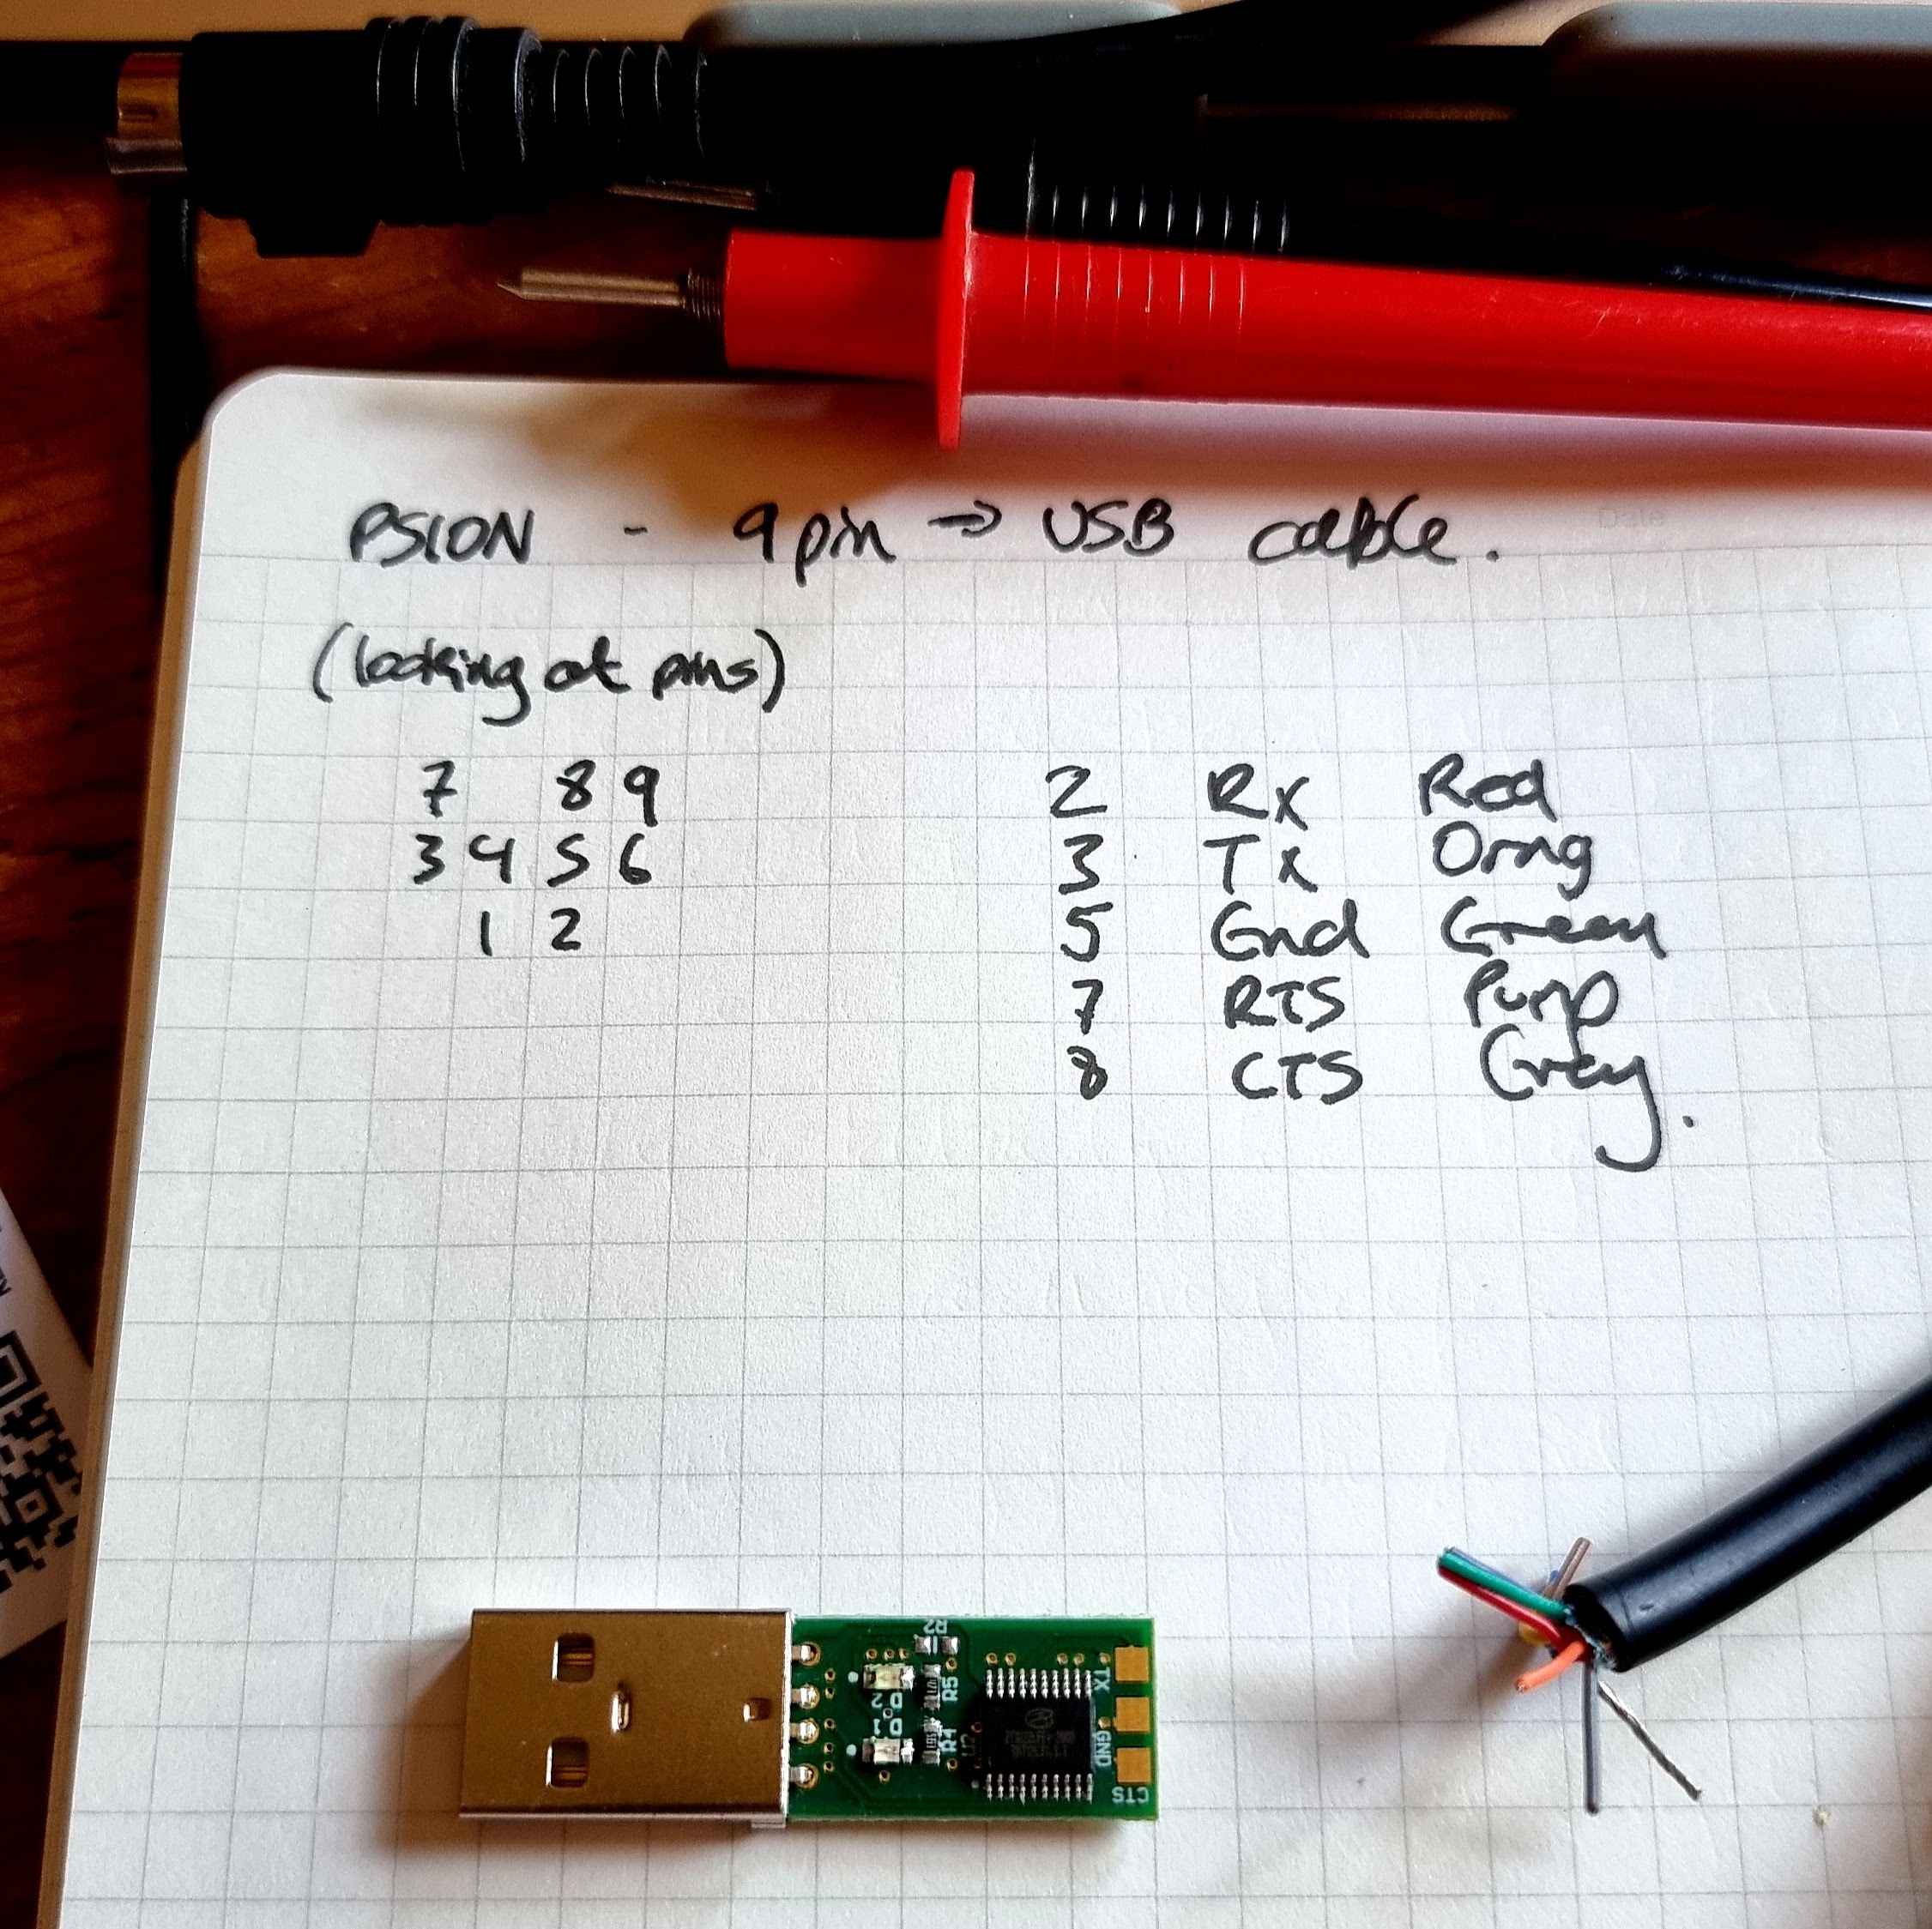 PSION - 9 pin → USB cable.
Date
(looking at pins)
7 8 9
3 4 5 6
1 2
2 Rx Red
3 Tx Orng
5 Gnd Green
7 RTS Purp
8 CTS Grey.
R2
R5
R4
U2
TX
GND
CTS